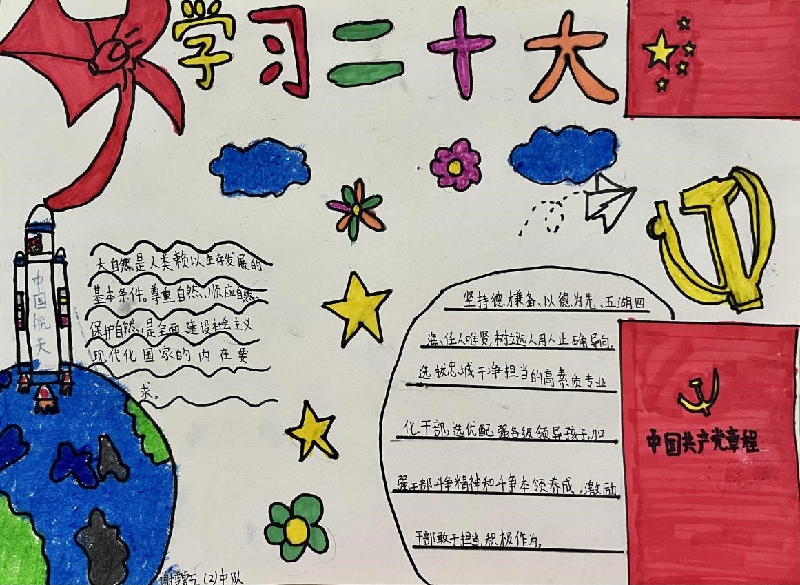 学习二十大
中国航天
大自然是人类赖以生存发展的
基本条件。尊重自然、顺应自然、
保护自然,是全面建设社会主义
现代化国家的内在要
求。
坚持德才兼备、以德为先、五湖四
海、任人唯贤,树立选人用人正确导向,
选拔忠诚干净担当的高素质专业
化干部,选优配强各级领导班子,加
强干部斗争精神和斗争本领养成,激励
干部敢于担当、积极作为。
中国共产党章程
(2)中队